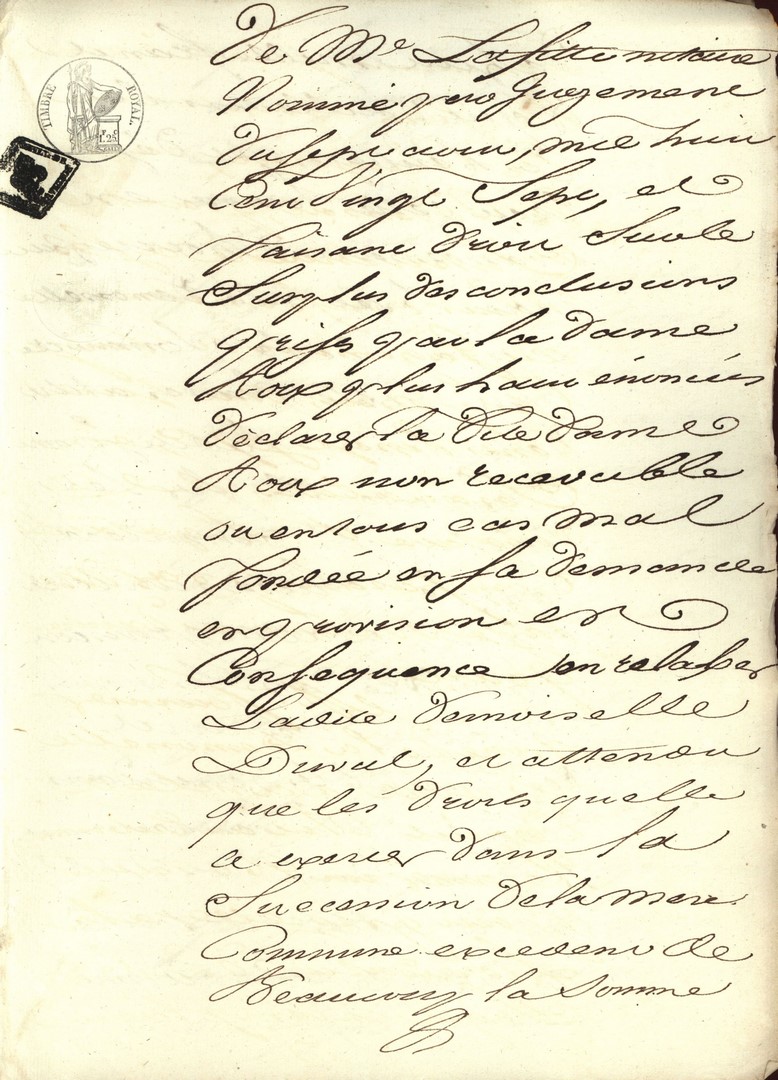 TIMBRE ROYAL.
F. C.
1. 25.
De Me Lafitte notaire
Nommé par Jugement
du sept aout, mil huit
Cent Vingt Sept, et
faisant droit Sur le
Surplus des conclusions
prises par la dame
Roux plus haut énoncées
déclarer la dite dame
Roux non recevable
ou en tous cas mal
fondée en sa demande
en provision en
Consequence, en relaxer
Ladite demoiselle
Duval, et attendu
que les droits quelle
a exercer dans la
Succession de la mere
Commune excedent de
Beaucoup la Somme